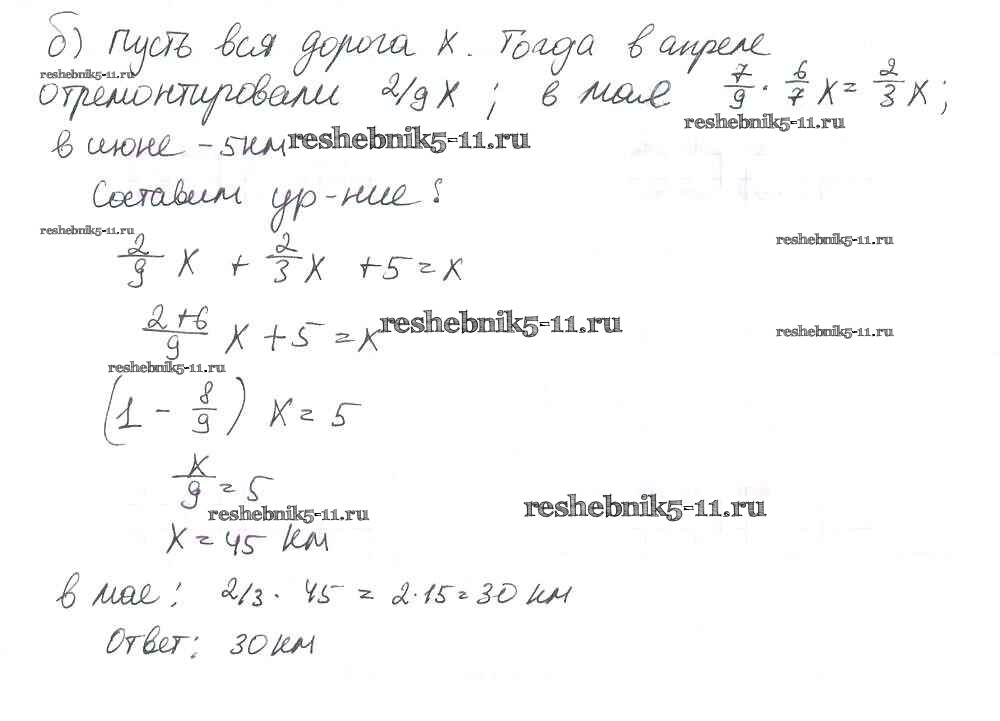 б) Пусть вся дорога x. Тогда в апреле
reshebnik5-11.ru
отремонтировали 2/9 x ; в мае 7/9 · 6/7 x = 2/3 x ;
reshebnik5-11.ru
в июне – 5км reshebnik5-11.ru
Составим ур-ние :
reshebnik5-11.ru
reshebnik5-11.ru
2/9 x + 2/3 x + 5 = x
2+6/9 x + 5 = x reshebnik5-11.ru
reshebnik5-11.ru
reshebnik5-11.ru
(1 – 8/9) x = 5
x/9 = 5
reshebnik5-11.ru
reshebnik5-11.ru
x = 45 км
в мае : 2/3 · 45 = 2·15 = 30 км
Ответ : 30 км